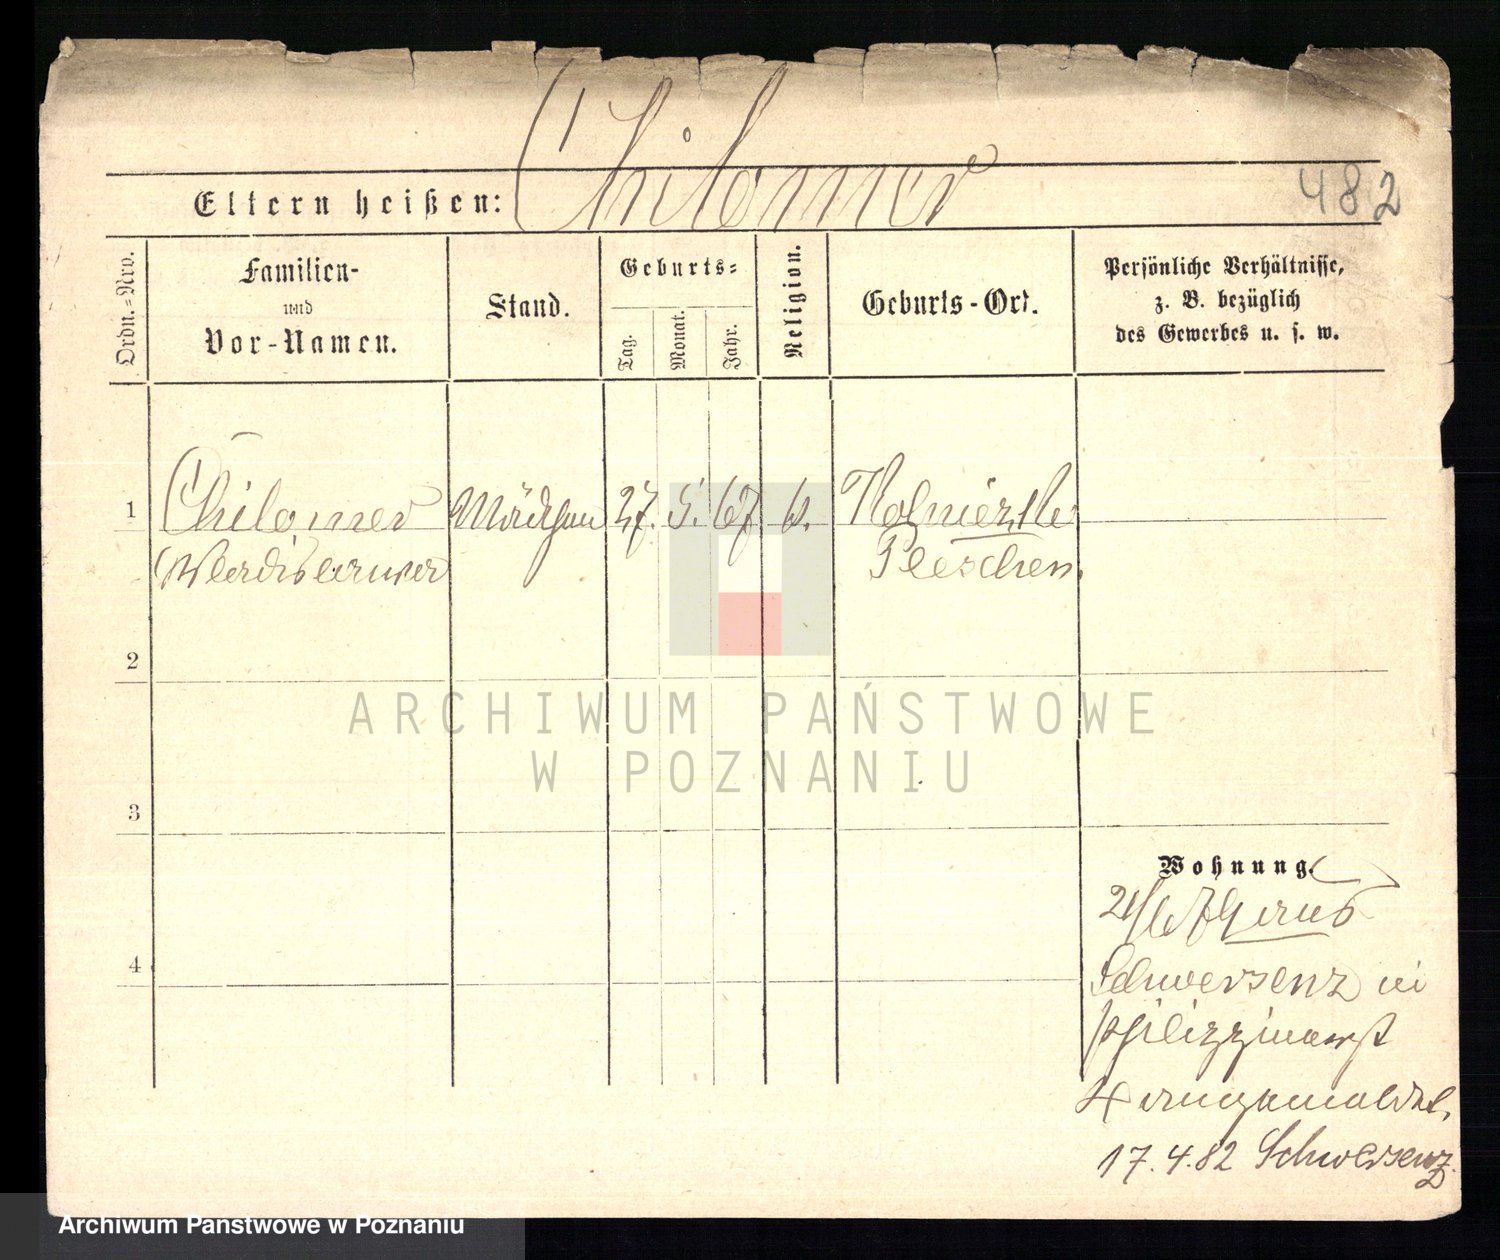 Chilomer
Eltern heißen:
482
Ordn.=Nro.
Familien-
und
Vor-Namen.
Stand.
Geburts=
Tag.
Monat.
Jahr.
Religion.
Geburts-Ort.
Persönliche Verhältnisse,
z. B. bezüglich
des Gewerbes u. s. w.
1
Chilomer
Mädchen
27. 5. 67
Wladislawa
Pleschen
2
ARCHIWUM PAŃSTWOWE
W POZNANIU
3
Wohnung.
21/6 79 aus
4
Schwersenz in
Philippinenst
4 angemeldet.
17.4.82 Schwersenz
Archiwum Państwowe w Poznaniu